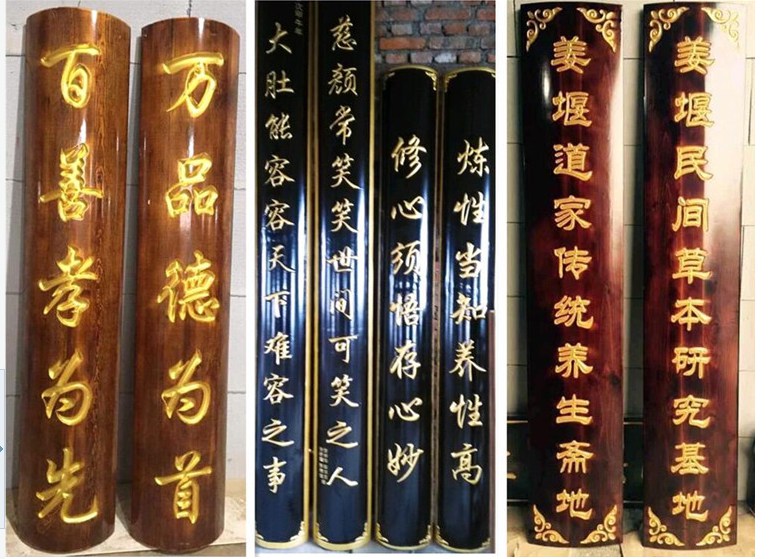 百善孝为先
万品德为首
大肚能容容天下难容之事
慈颜常笑笑世间可笑之人
修心须悟存心妙
炼性当知养性高
姜堰道家传统养生斋地
姜堰民间草本研究基地